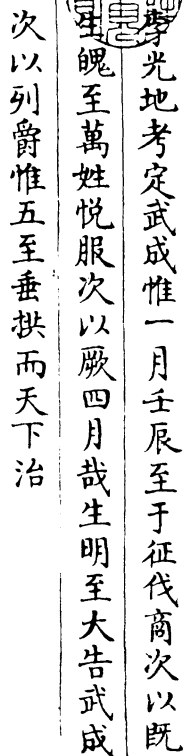 李光地考定武成惟一月壬辰至于征伐商次以既
生魄至萬姓悅服次以厥四月哉生明至大告武成
次以列爵惟五至垂拱而天下治